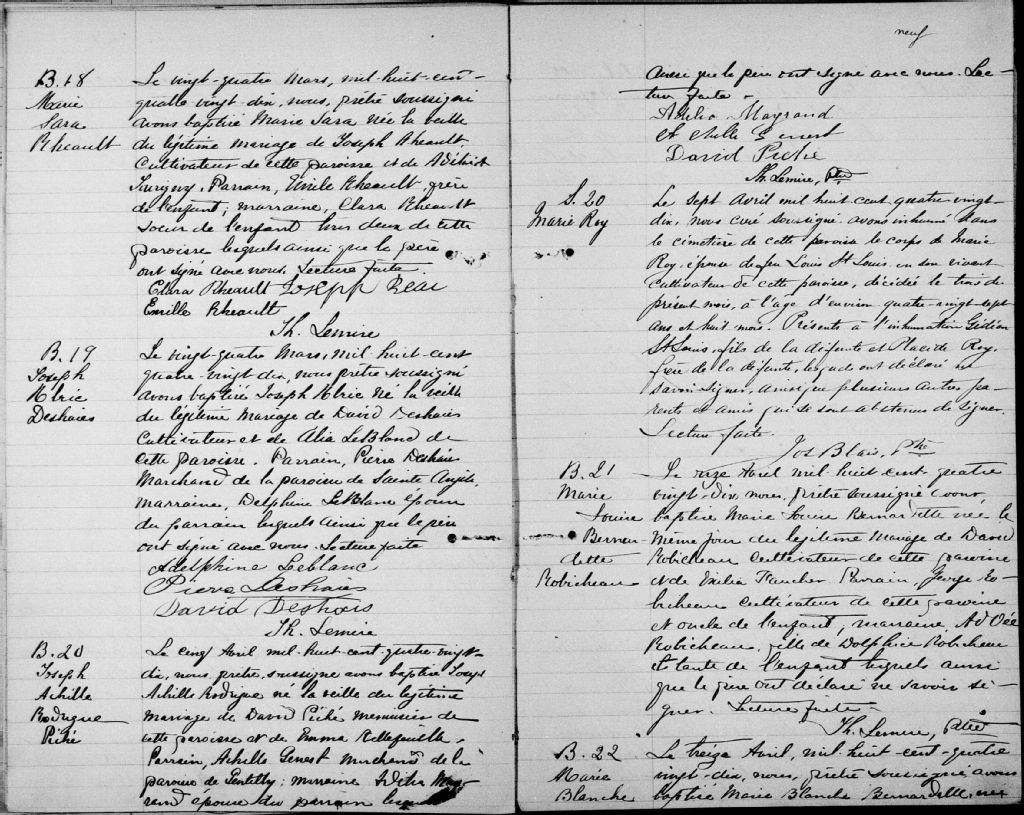 B.18
Marie
Sara
Rheault
Le vingt-quatre Mars, mil-huit-cent-
quatre vingt-dix, nous, prêtre soussigné
avons baptisé Marie Sara née la veille
du légitime mariage de Joseph Rheault
Cultivateur de cette paroisse et de
Parrain, Emile Rheault, frère
de l'enfant; marraine, Clara Rheault
Soeur de l'enfant tous deux de cette
paroisse lesquels ainsi que le père
ont signé avec nous. Lecture faite.
Clara Rheault Joseph
Emille Rheault
Th. Lemire
B. 19
Joseph
Alric
Deshaies
Le vingt-quatre Mars, mil huit-cent
quatre-vingt dix, nous prêtre soussigné
avons baptisé Joseph Alric né la veille
du légitime mariage de David Deshaies
Cultivateur et de Alia LeBlanc de
cette paroisse. Parrain, Pierre Deshaies
Marchand de la paroisse de Sainte Angèle
marraine, Delphine LeBlanc épouse
du parrain lesquels ainsi que le père
ont signé avec nous. Lecture faite
Adelphine Leblanc
Pierre Deshaies
David Deshaies
Th. Lemire
B. 20
Joseph
Achille
Rodrigue
Piché
Le cinq Avril mil-huit-cent-quatre-vingt-
dix, nous, prêtre, soussigné avons baptisé Joseph
Achille Rodrigue né la veille du légitime
mariage de David Piché menuisier de
cette paroisse et de Emma Bellefeuille.
Parrain, Achille Genest Marchand de la
paroisse de Gentilly; marraine Adelia May-
rand épouse du parrain lesquels
neuf
ainsi que le père ont signé avec nous. Lec-
ture faite.
Adelia Mayrand
Achille Genest
David Piché
Th. Lemire, Ptre
S. 20
Marie Roy
Le Sept Avril mil huit cent quatre vingt-
dix, nous curé soussigné, avons inhumé dans
le cimetière de cette paroisse le corps de Marie
Roy, épouse de feu Louis St Louis en son vivant
Cultivateur de cette paroisse, décédée le trois du
présent mois, à l'age d'environ quatre-vingt-sept
ans et huit mois. Présents à l'inhumation Gédéon
St Louis, fils de la défunte et Placide Roy,
frère de la défunte, lesquels ont déclaré ne
savoir signer, ainsi que plusieurs autres pa-
rents et amis qui se sont abstenus de signer.
Lecture faite.
Jos Blais, Ptre
B. 21
Marie
Louise
Bernar-
dette
Robicheau
Le onze Avril mil huit-cent-quatre
vingt-dix, nous, prêtre soussigné avons
baptisé Marie Louise Bernardette née le
même jour du légitime mariage de David
Robicheau Cultivateur de cette paroisse
et de Exilia Faucher Parrain, George Ro-
bicheau Cultivateur de cette paroisse
et oncle de l'enfant; marraine,
Robicheau, fille de Dolphice Robicheau
et tante de l'enfant lesquels ainsi
que le père ont déclaré ne savoir si-
gner. Lecture faite.
Th. Lemire, Ptre
B. 22
Marie
Blanche
Le treize Avril, mil-huit-cent-quatre
vingt-dix, nous, prêtre soussigné avons
baptisé Marie Blanche Bernardette, née